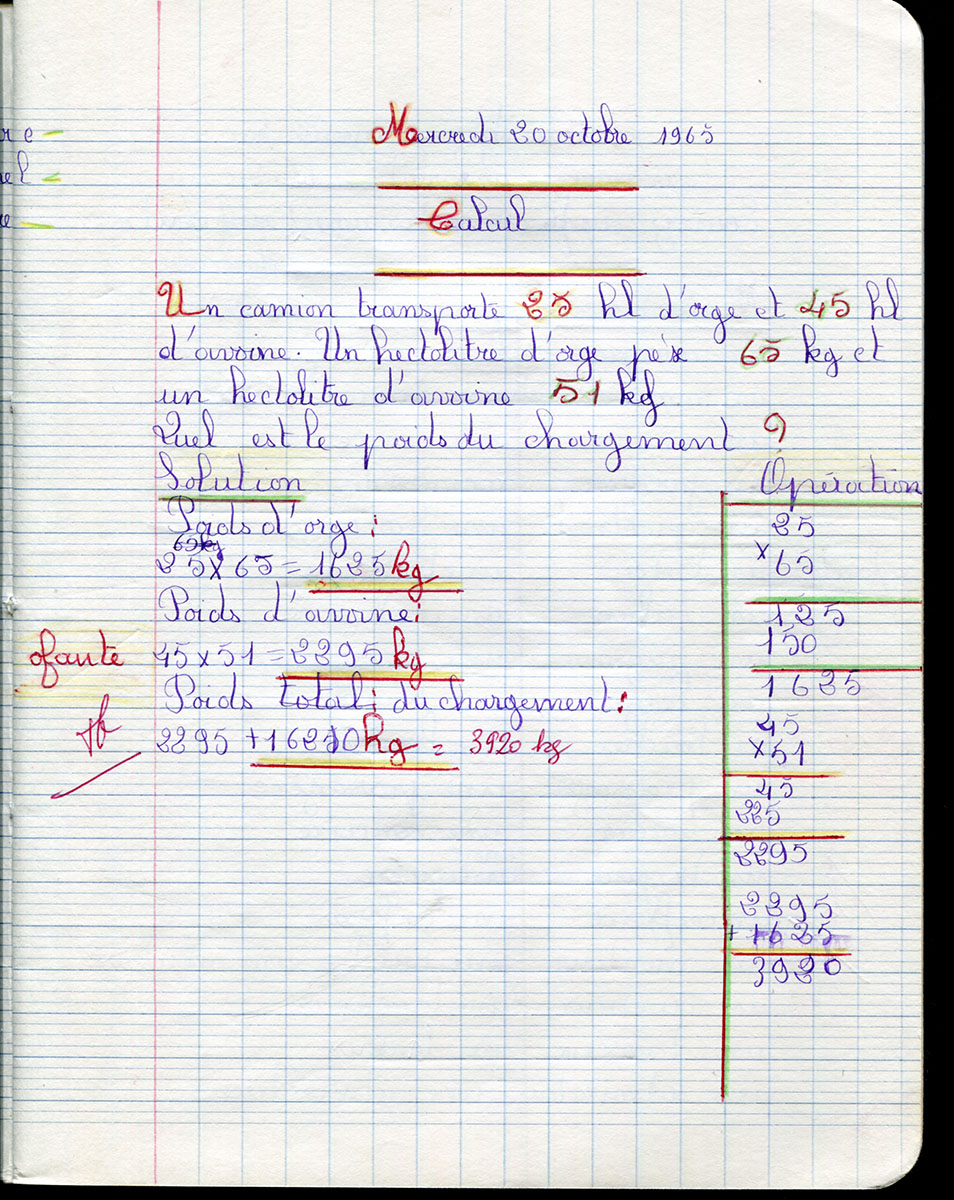 re
el
e
Mercredi 20 octobre 1965
Calcul
Un camion transporte 25 hl d'orge et 45 hl
d'avoine. Un hectolitre d'orge pèse 65 kg et
un hectolitre d'avoine 51 kg
Quel est le poids du chargement ?
Solution
Poids d'orge :
65kg
25 x 65 = 1625 kg
Poids d'avoine :
0faute
45 x 51 = 2295 kg
Poids total : du chargement :
tb
2295 + 16210 Kg = 3920 kg
Opération
25
x 65
125
150
1625
45
x 51
45
225
2295
2295
+ 1625
3920